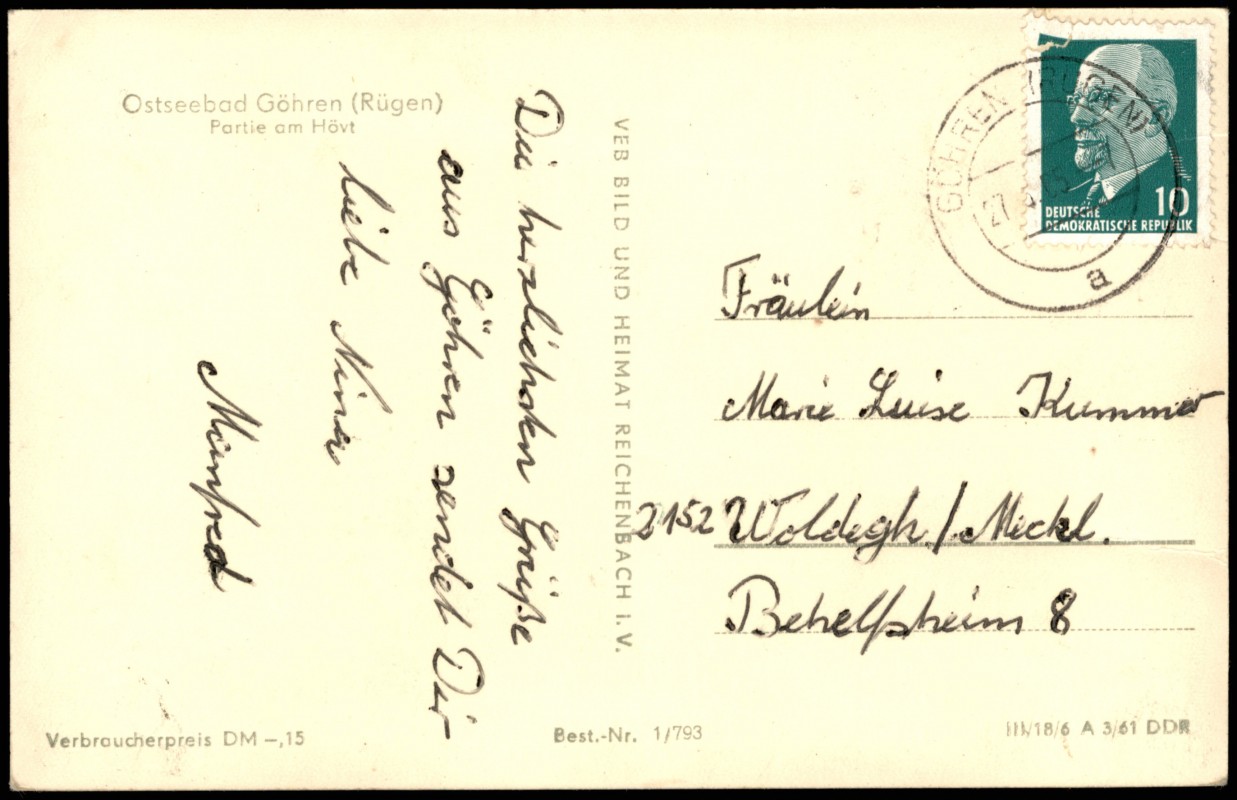 Ostseebad Göhren (Rügen)
Partie am Hövt
Die herzlichsten Grüße
aus Göhren sendet Dir
liebe Nina
Manfred
VEB BILD UND HEIMAT REICHENBACH I. V.
GÖHREN (RÜGEN)
27
a
10
DEUTSCHE
DEMOKRATISCHE REPUBLIK
Fräulein
Marie Luise Kummer
2152 Woldegk/Meckl.
Behelfsheim 8
Verbraucherpreis DM –,15
Best.-Nr. 1/793
III/18/6 A 3/61 DDR